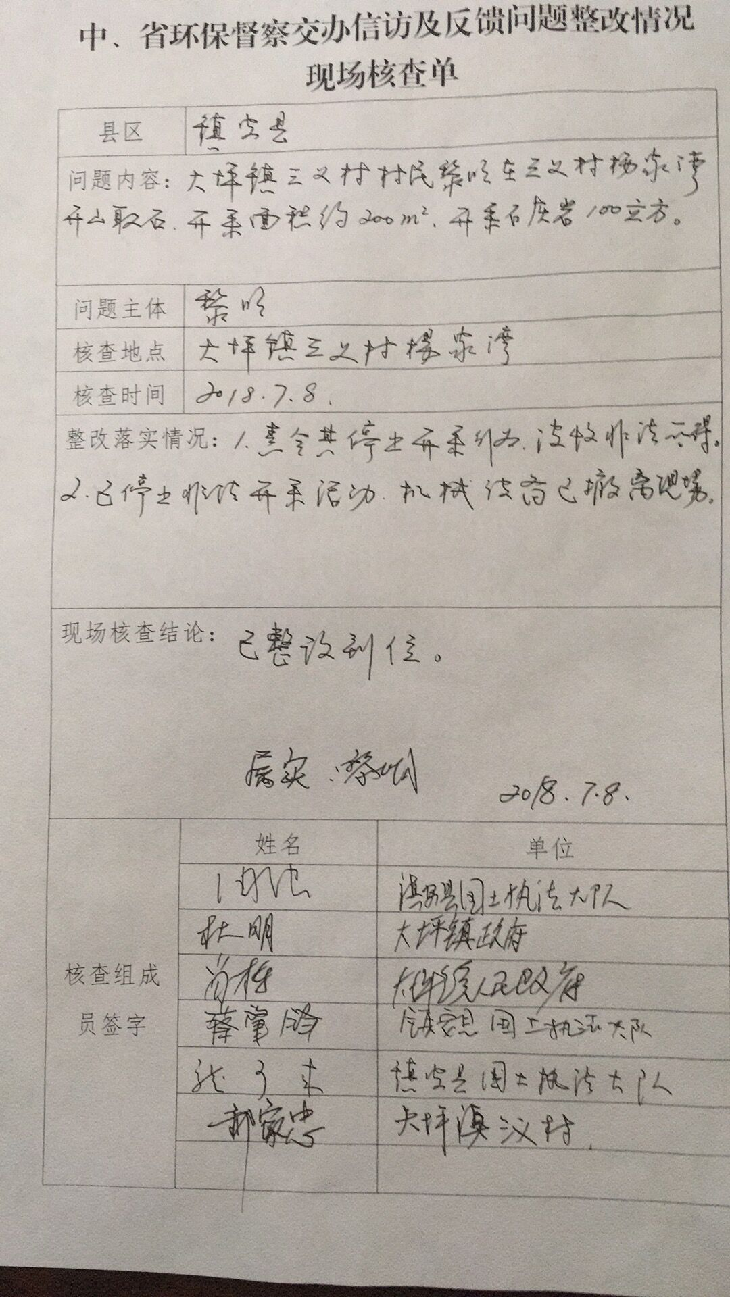 中、省环保督察交办信访及反馈问题整改情况
现场核查单
县区 镇安县
问题内容：大坪镇三义村村民黎明在三义村杨家湾
开山取石.开采面积约200m².开采石灰岩100立方。
问题主体 黎明
核查地点 大坪镇三义村杨家湾
核查时间 2018.7.8.
整改落实情况：1.责令其停止开采行为.没收非法所得。
2.已停止非法开采活动.机械设备已撤离现场。
现场核查结论：已整改到位。
属实.黎明
2018.7.8.
姓名 单位
镇安县国土执法大队
杜明 大坪镇政府
大坪镇人民政府
核查组成
员签字
镇安县国土执法大队
镇安县国土执法大队
郝家忠 大坪镇三义村.